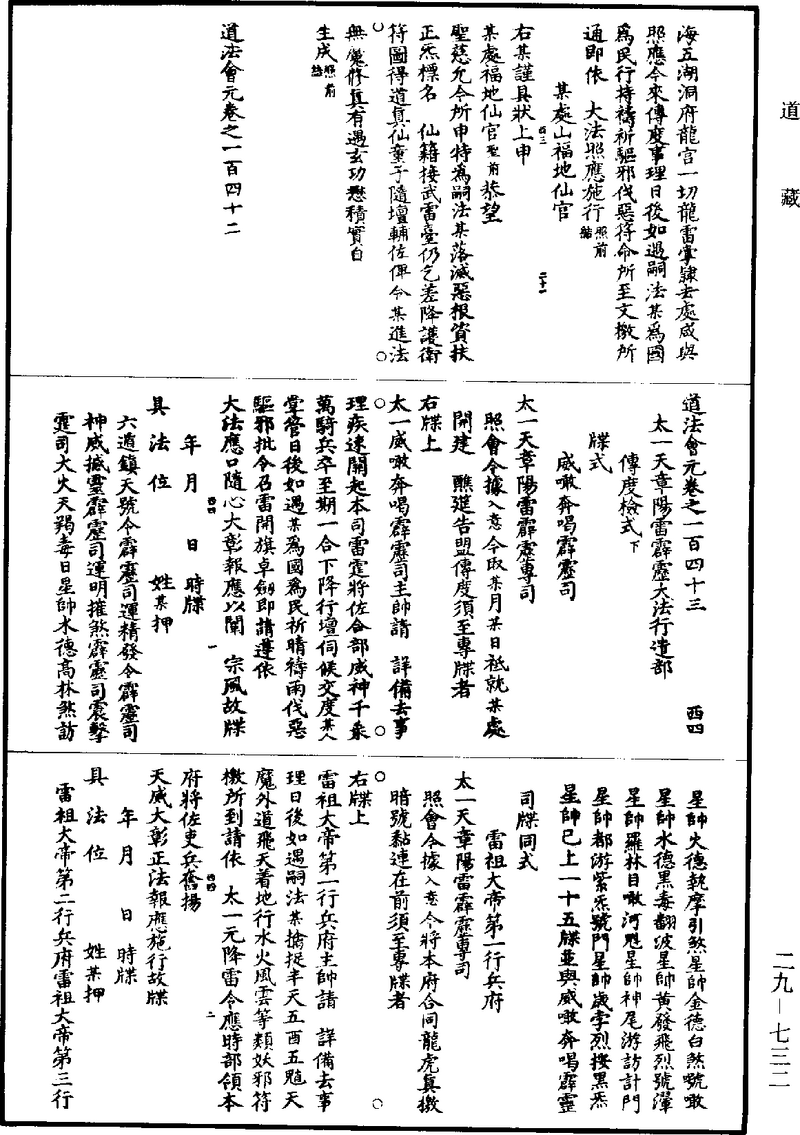 道藏
海五湖洞府龍宮一切龍雷掌隸去處咸與
照應今來傳度事理日後如遇嗣法某爲國
爲民行持禱祈驅邪伐惡符命所至文檄所
通即依　大法照應施行照前結
某處山福地仙官
右某謹具狀上申
某處福地仙官聖前恭望
聖慈允今所申特爲嗣法某落滅惡根資扶
正炁標名　仙籍接武雷臺仍乞差降護衛
符圖得道真仙童子隨壇輔佐俾令某進法
無魔修真有遇玄功懋積實自
生成照前結
道法會元卷之一百四十二
道法會元卷之一百四十三　西四
太一天章陽雷霹靂大法行遣部
傳度檢式下
牒式
威噉奔喝霹靂司
太一天章陽雷霹靂專司
照會今據入意今取某月某日祗就某處
開建　醮筵告盟傳度須至專牒者
右牒上
太一威噉奔喝霹靂司主帥請　詳備去事
理疾速開起本司雷霆將佐合部威神千乘
萬騎兵卒至期一合下降行壇伺候交度某人
掌管日後如遇某爲國爲民祈晴禱雨伐惡
驅邪批令召雷開旗卓劍即請遵依
大法應口隨心大彰報應以闡　宗風故牒
年　月　日　時牒
具　法　位　姓某押
六遁鎮天號令霹靂司運精發令霹靂司
神威撼靈霹靂司運明摧煞霹靂司震擊
霆司大火天羯毒日星帥水德高林煞訪
星帥火德執摩引煞星帥金德白煞號噉
星帥水德黑毒翻波星帥黃發飛烈號渾
星帥羅林目噉河魁星帥神尾游訪計門
星帥都游紫炁號門星帥歲孛烈按黑炁
星帥已上一十五牒並與威噉奔喝霹靂
司牒同式
雷祖大帝第一行兵府
太一天章陽雷霹靂專司
照會今據入意今將本府合同龍虎真檄
暗號黏連在前須至專牒者
右牒上
雷祖大帝第一行兵府主帥請　詳備去事
理日後如遇嗣法某擒捉半天五酉五魈天
魔外道飛天着地行水火風雲等類妖邪符
檄所到請依　太一元降雷令應時部領本
府將佐吏兵奮揚
天威大彰正法報應施行故牒
年　月　日　時牒
具　法　位　姓某押
雷祖大帝第二行兵府雷祖大帝第三行
二九—七三二